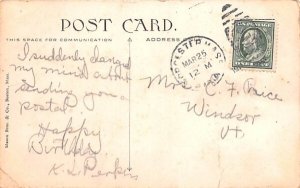 POST CARD.
THIS SPACE FOR COMMUNICATION
ADDRESS
I suddenly changed
my mind about
sending you a
postal
Happy
Birthday
K. L. Perkins
Mason Bros. & Co., Boston, Mass.
WORCESTER MASS.
MAR 25
12 M
Mrs. C. F. Price
Windsor
Vt.